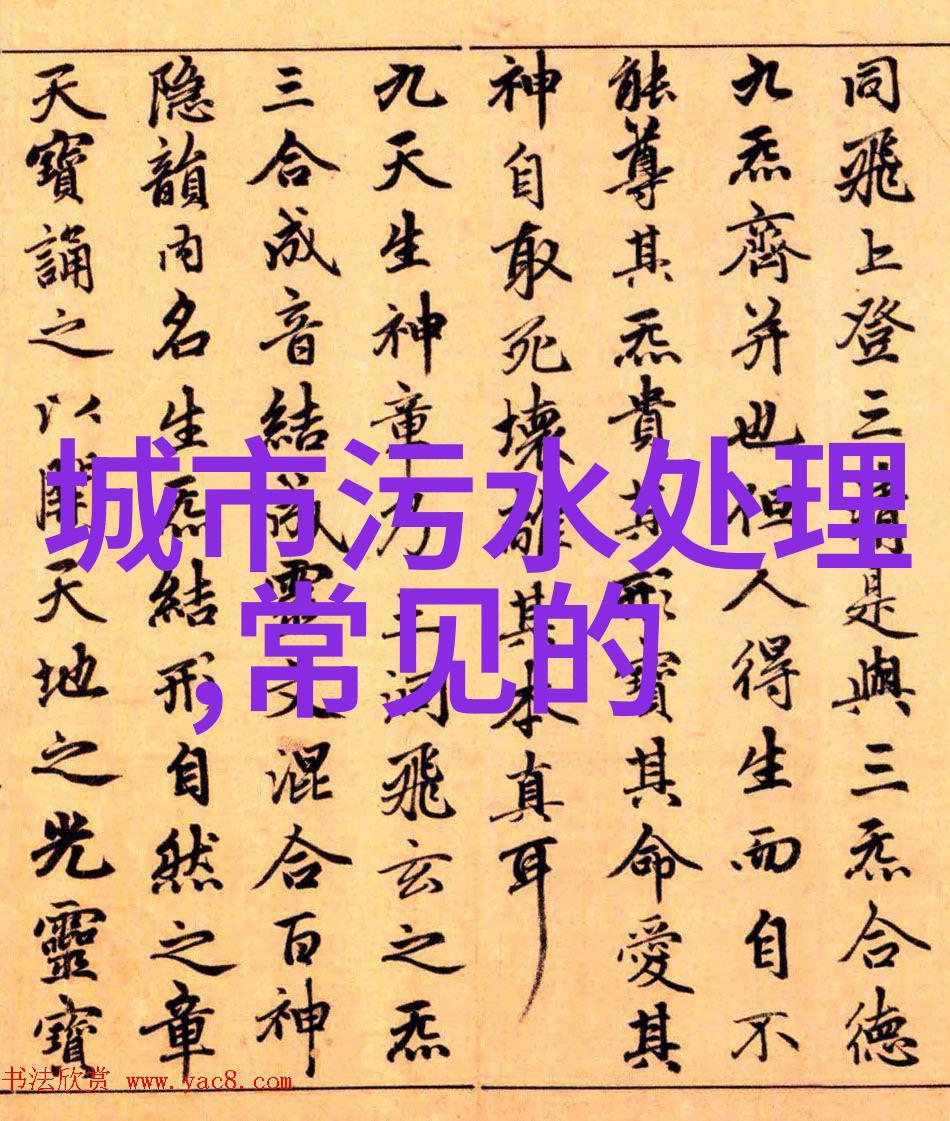 同飛上登三清是與三炁合德
九炁齊并也但人得生而自不
能尊其炁貴其形寶其命愛其
神自取死壞離其本真耳
九天生神章乃三洞飛玄之炁
三合成音結成靈文混合百神
隐韻内名生炁結形自然之章
天寶誦之以開天地之光靈寶
城市污水处理
,常见的
书法欣赏 www.yac8.com